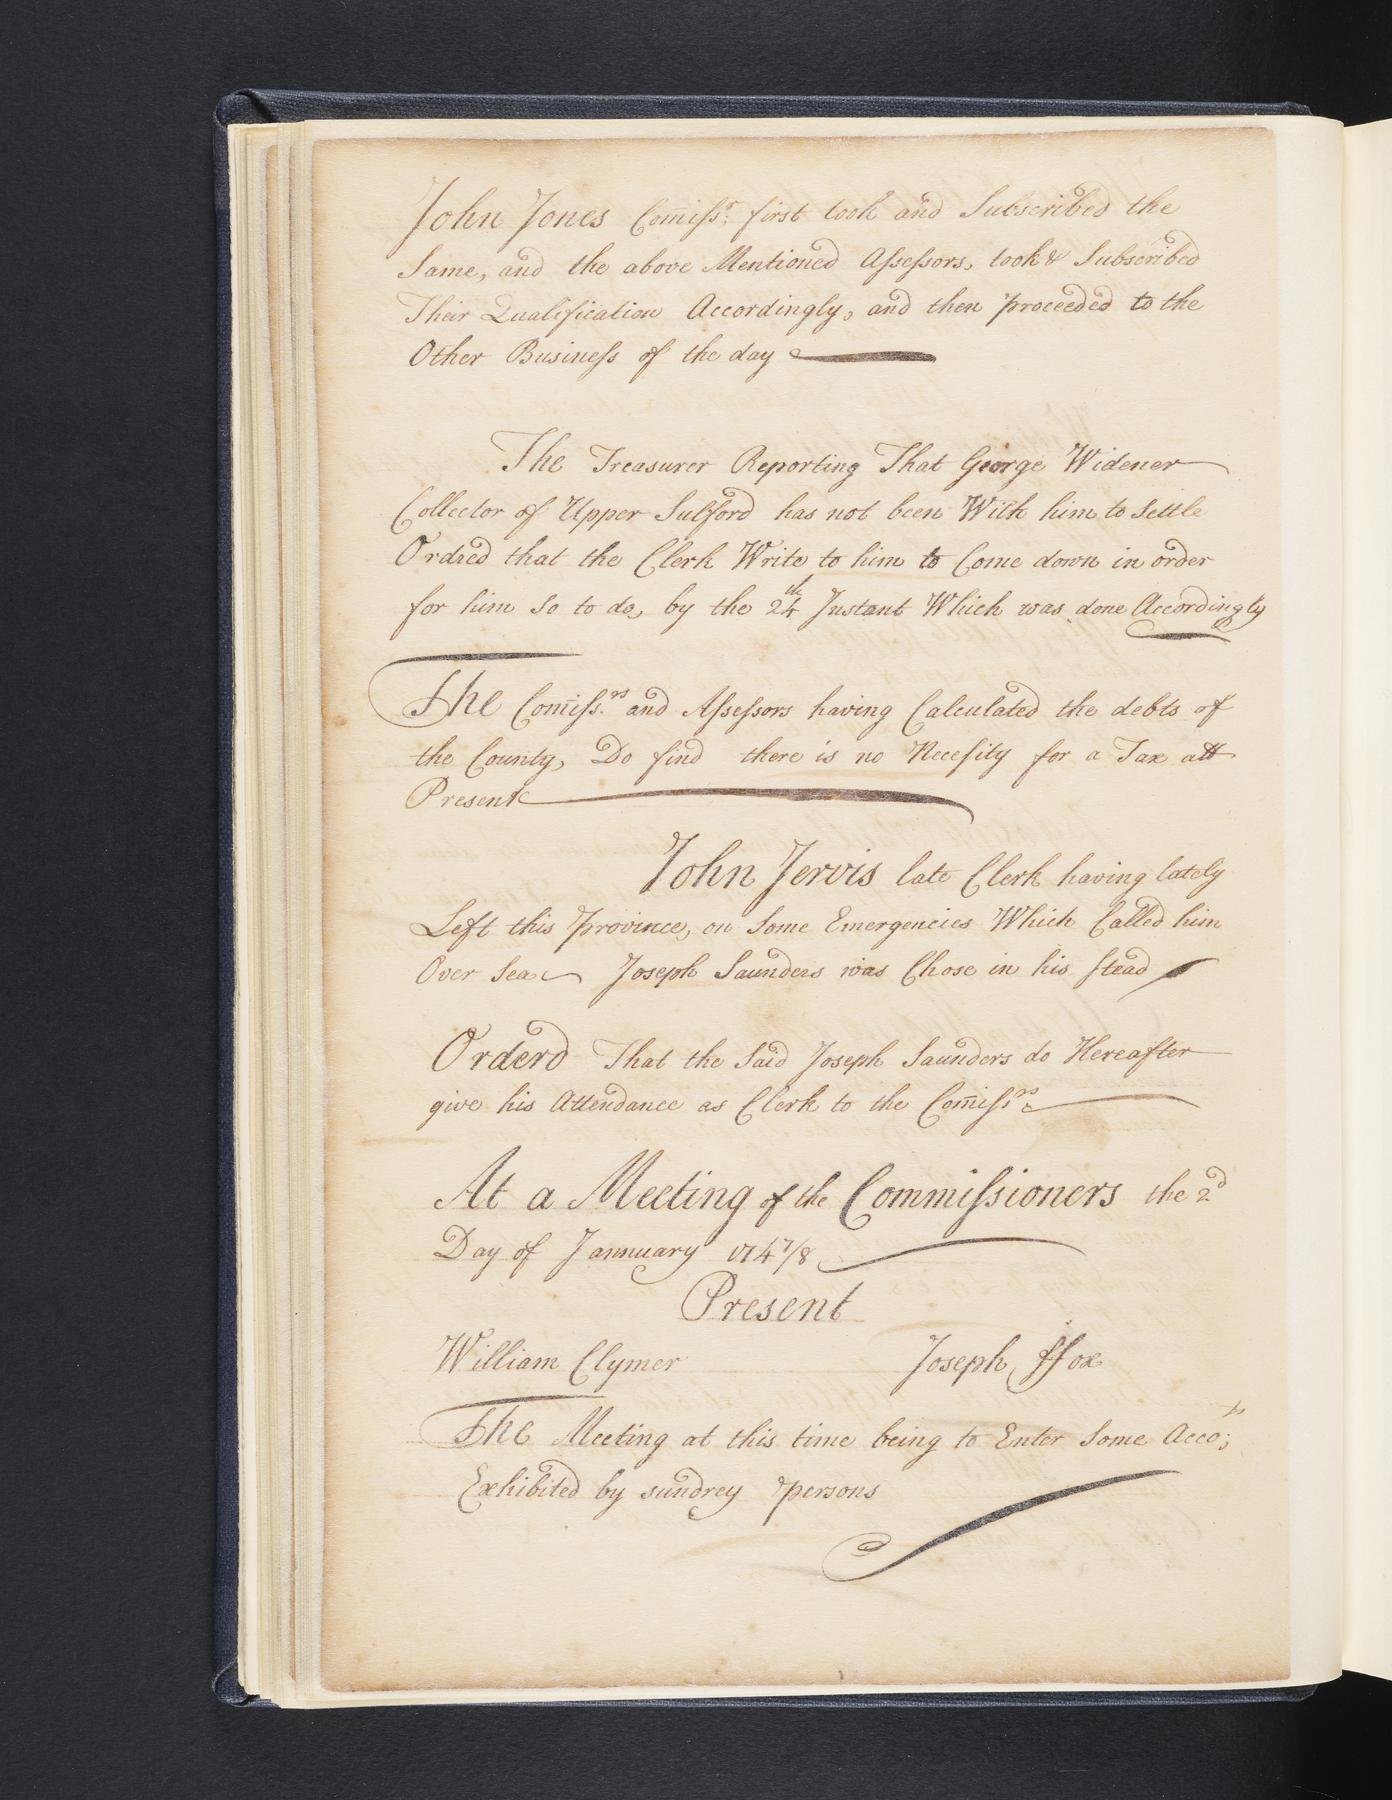 John Jones Com̄issr. first took and Subscribed the
Same, and the above Mentioned Assessors, took & Subscribed
Their Qualification Accordingly, and then proceeded to the
Other Business of the day
The Treasurer Reporting That George Widener
Collector of Upper Sulford has not been With him to Settle
Ordred that the Clerk Write to him to Come down in order
for him So to do, by the 24th Instant Which was done Accordingly
The Com̄iss.rs and Assessors having Calculated the debts of
the County, Do find there is no Necesity for a Tax att
Present
John Jervis late Clerk having lately
Left this Province, on Some Emergencies Which Called him
Over Sea Joseph Saunders was Chose in his Stead
Orderd That the Said Joseph Saunders do Hereafter
give his Attendance as Clerk to the Com̄issrs
At a Meeting of the Commissioners the 2d
Day of Jannuary 1747/8
Present
William Clymer Joseph ffox
The Meeting at this time being to Enter Some Accots;
Exhibited by sundrey persons